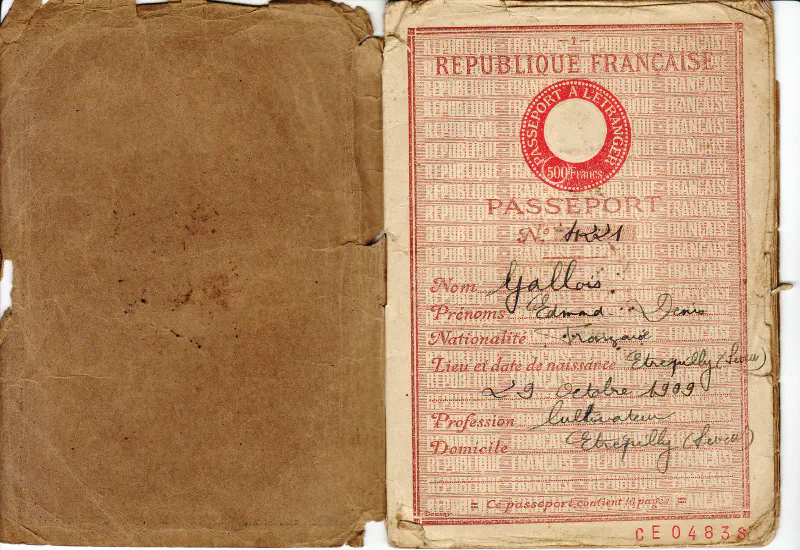 REPUBLIQUE FRANÇAISE
PASSEPORT A L'ETRANGER
500 Francs
PASSEPORT
N° 4221
Nom Gallois.
Prénoms Edmad Denis
Nationalité Française
Lieu et date de naissance Etrepilly
29 Octobre 1909
Profession Cultivateur
Domicile Etrepilly
= Ce passeport contient 16 pages =
CE 04838